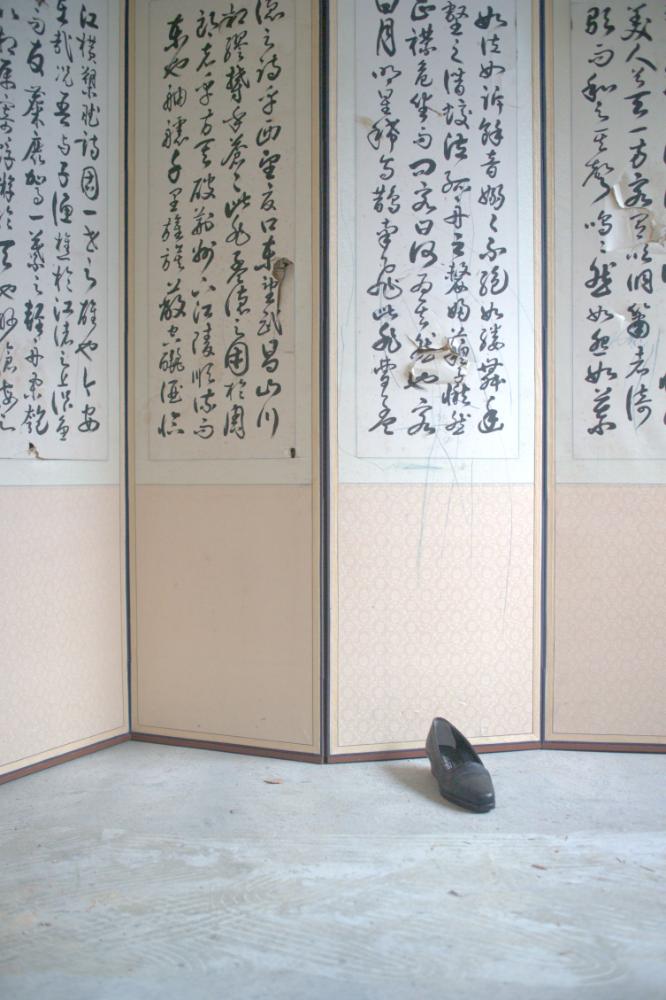 美人兮天一方客有吹洞簫者倚
歌而和之其聲嗚嗚然如怨如慕
如泣如訴餘音嫋嫋不絕如縷舞幽
壑之潛蛟泣孤舟之嫠婦蘇子愀然
正襟危坐而問客曰何為其然也客
曰月明星稀烏鵲南飛此非曹孟
德之詩乎西望夏口東望武昌山川
相繆鬱乎蒼蒼此非孟德之困於周
郎者乎方其破荊州下江陵順流而
東也舳艫千里旌旗蔽空釃酒臨
江橫槊賦詩固一世之雄也今安
在哉況吾與子漁樵於江渚之上侶魚
而友麋鹿駕一葉之輕舟舉匏
相屬寄蜉蝣於天地渺滄海之